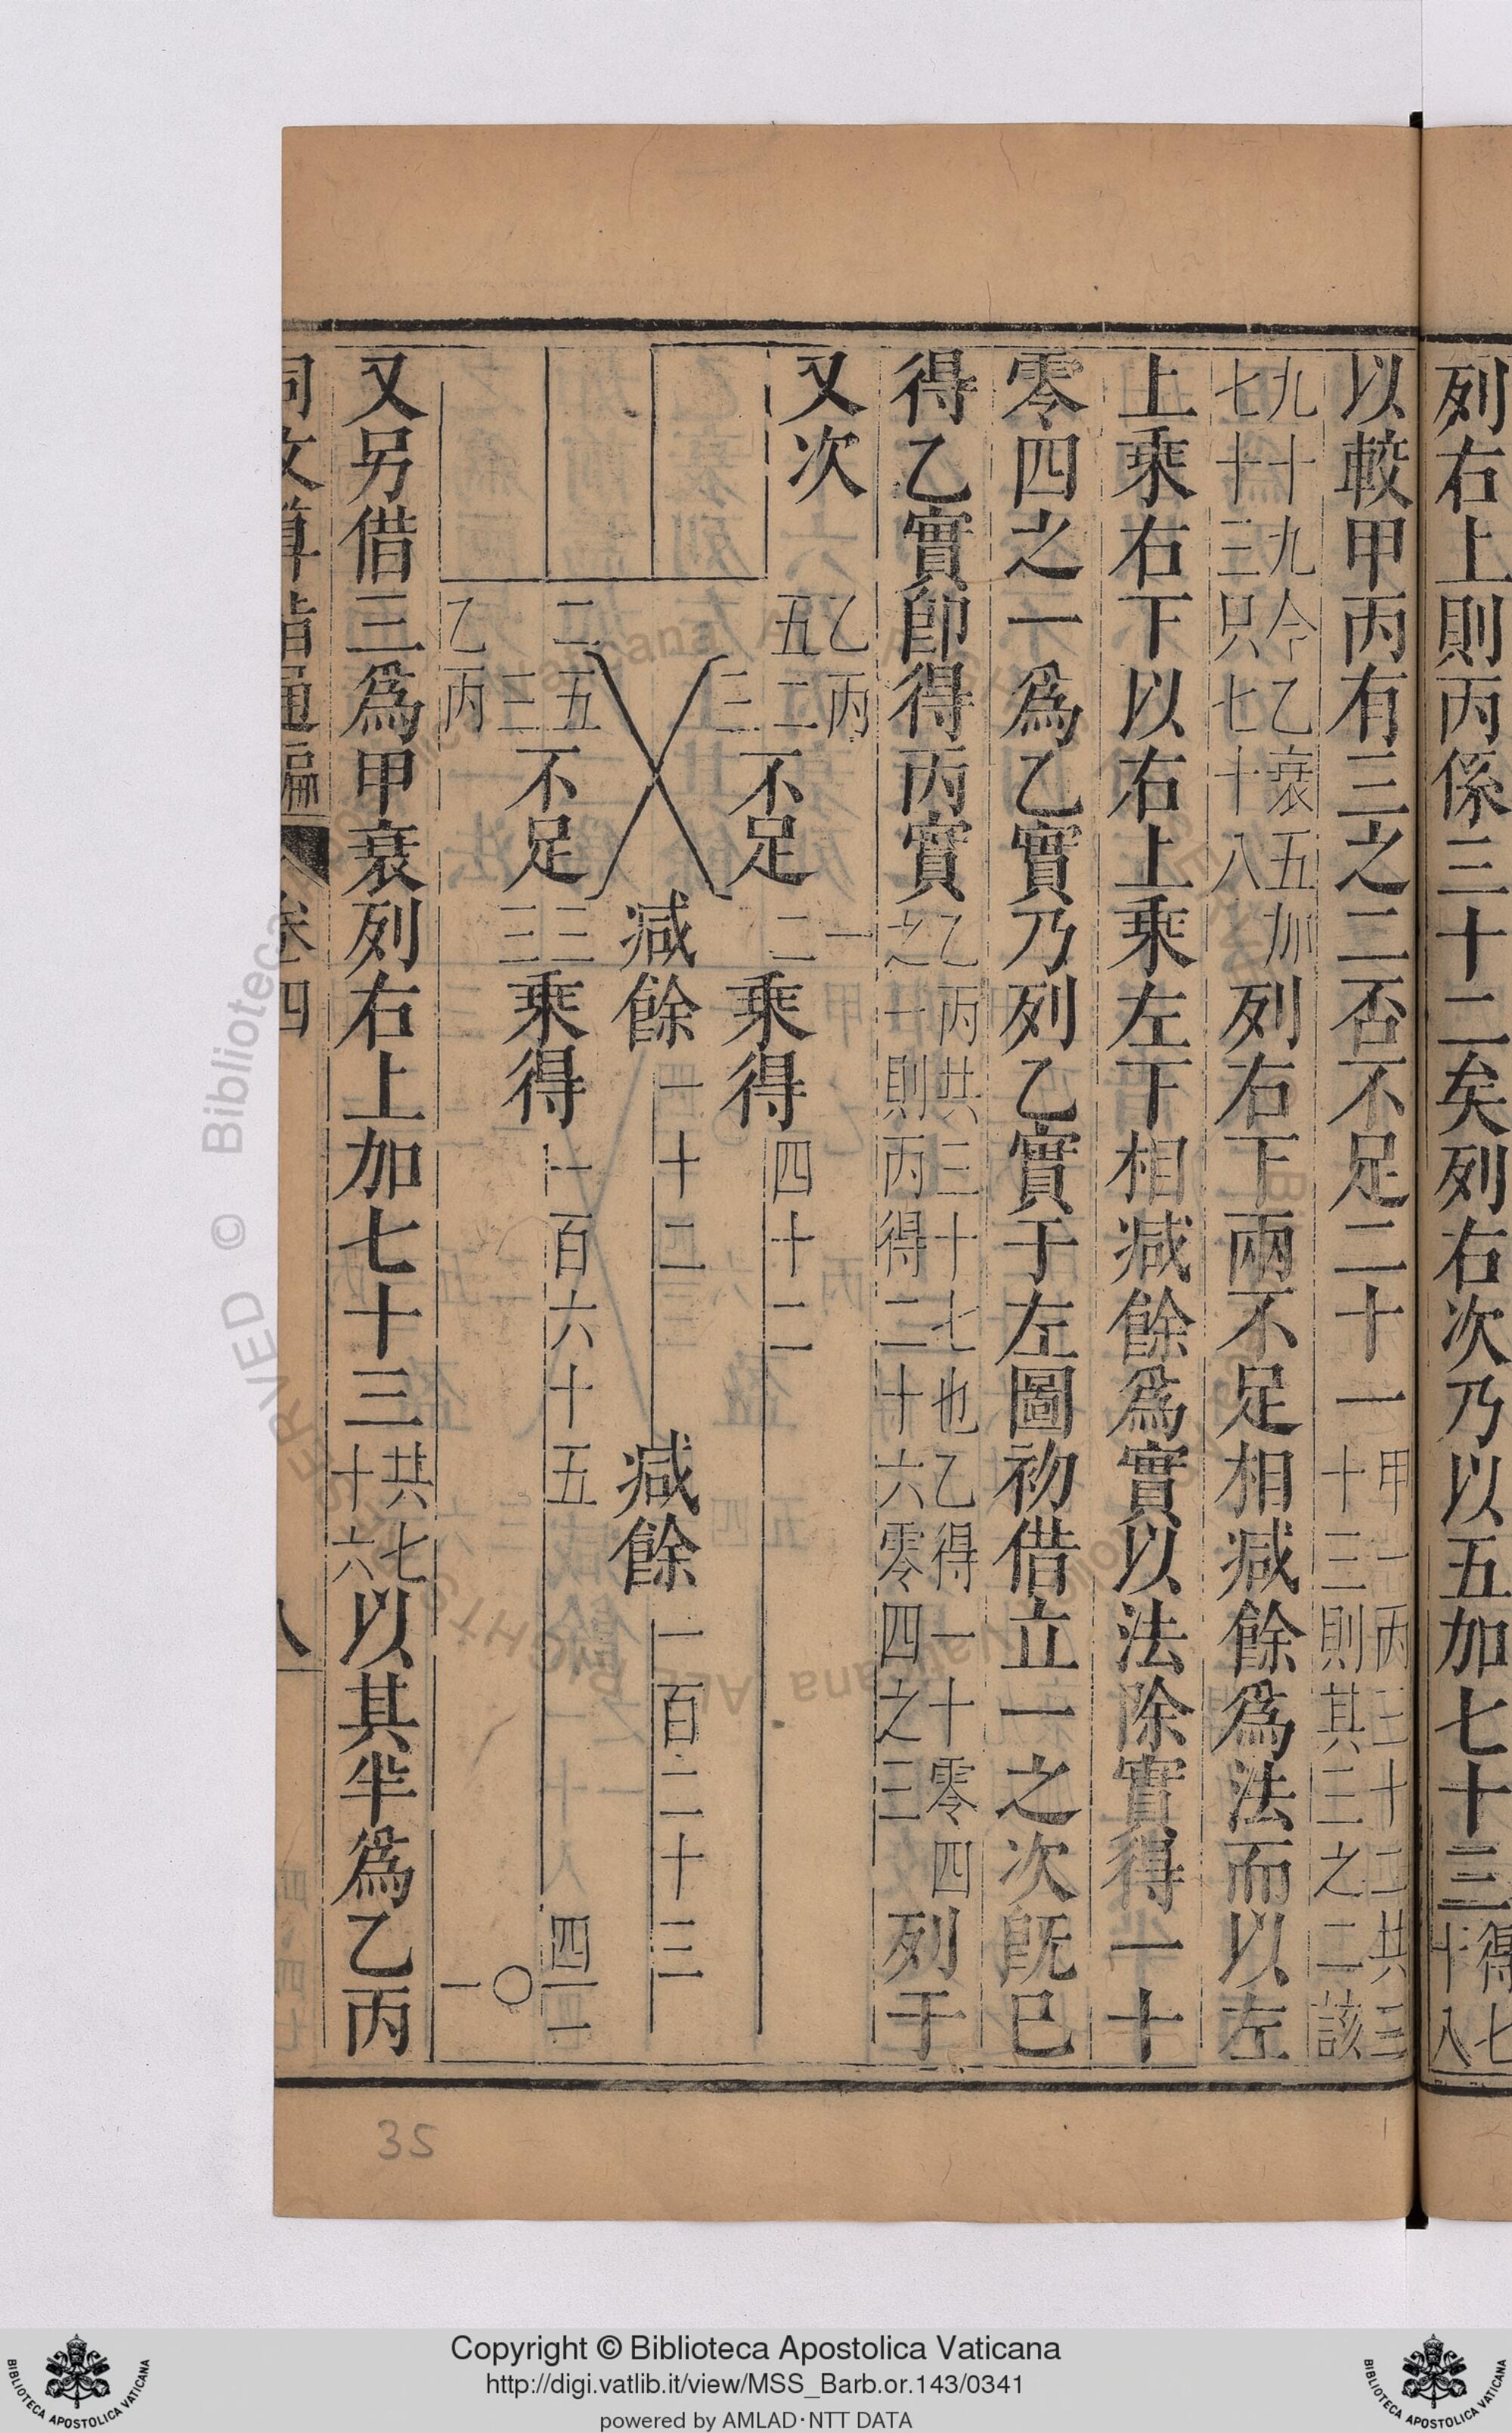 列右上則丙係三十二矣列右次乃以五加七十三得七十八
以較甲丙有三之二否不足二十一甲一丙三十二共三十三則其三之二該
九十九今乙衰五加七十三只七十八列右下兩不足相減餘爲法而以左
上乘右下以右上乘左下相減餘爲實以法除實得一十
零四之一爲乙實乃列乙實于左圖初借立一之次既巳
得乙實卽得丙實乙丙共三十七也乙得一十零四之一則丙得二十六零四之三列于
又次
乙丙
五二三
不足
一二
乘得
四十二
減餘
一十二
減餘
一百二十三
二五三
不足
三三
乘得
一百六十五
乙丙
四一
一〇
又另借三爲甲衰列右上加七十三共七十六以其半爲乙丙
同文算指通編
卷四
八
35
Copyright © Biblioteca Apostolica Vaticana
http://digi.vatlib.it/view/MSS_Barb.or.143/0341
powered by AMLAD·NTT DATA